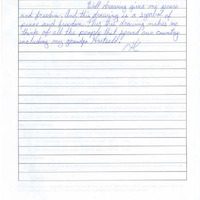 Well drawing gives me peace
and freedom. And this drawing is a symbol of
peace and freedom. This drawing makes me
think of all the people that our country
including my grandpa